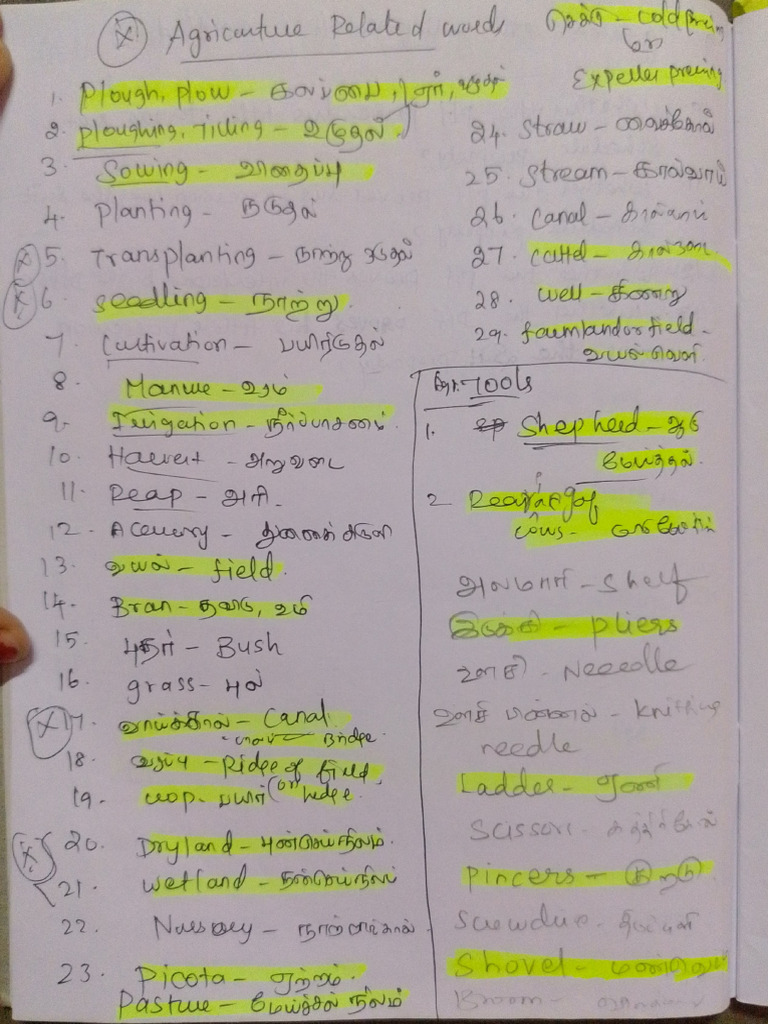 Agricuture Related words
1. Plough, plow - கலப்பை, ஏர், உழுதல்
2. ploughing, Tilling - உழுதல்
3. Sowing - விதைப்பு
4. Planting - நடுதல்
5. Transplanting - நாற்று நடுதல்
6. Seedling - நாற்று
7. Cultivation - பயிரிடுதல்
8. Manure - உரம்
9. Irrigation - நீர்ப்பாசனம்
10. Harvest - அறுவடை
11. Reap - அரி
12.
13. வயல் - field
14. Bran - தவிடு, உமி
15. புதர் - Bush
16. grass - புல்
17. வாய்க்கால் - Canal
18. வரப்பு - Ridge of field
19. crop - பயிர் (or) hedge
20. Dryland - புன்செய்நிலம்
21. Wetland - நன்செய்நிலம்
22. Nursery - நாற்றங்கால்
23. Picota - ஏற்றம்
Pasture - மேய்ச்சல் நிலம்
செக்கு - Cold pressing
or
Expeller pressing
24. Straw - வைக்கோல்
25. Stream - கால்வாய்
26. Canal - கால்வாய்
27. Cattel - கால்நடை
28. well - கிணறு
29. farmland or field -
வயல்வெளி
TOOLS
1. Shepherd - ஆடு
மேய்த்தல்
2. Rearing of
cows -
அலமாரி - Shelf
இடுக்கி - pliers
ஊசி - Neeedle
ஊசி பின்னல் - Knitting
needle
Ladder - ஏணி
Scissors - கத்திரிகோல்
Pincers - குறடு
Screwdrive - திருப்புளி
Shovel - மண்வெட்
Broom -